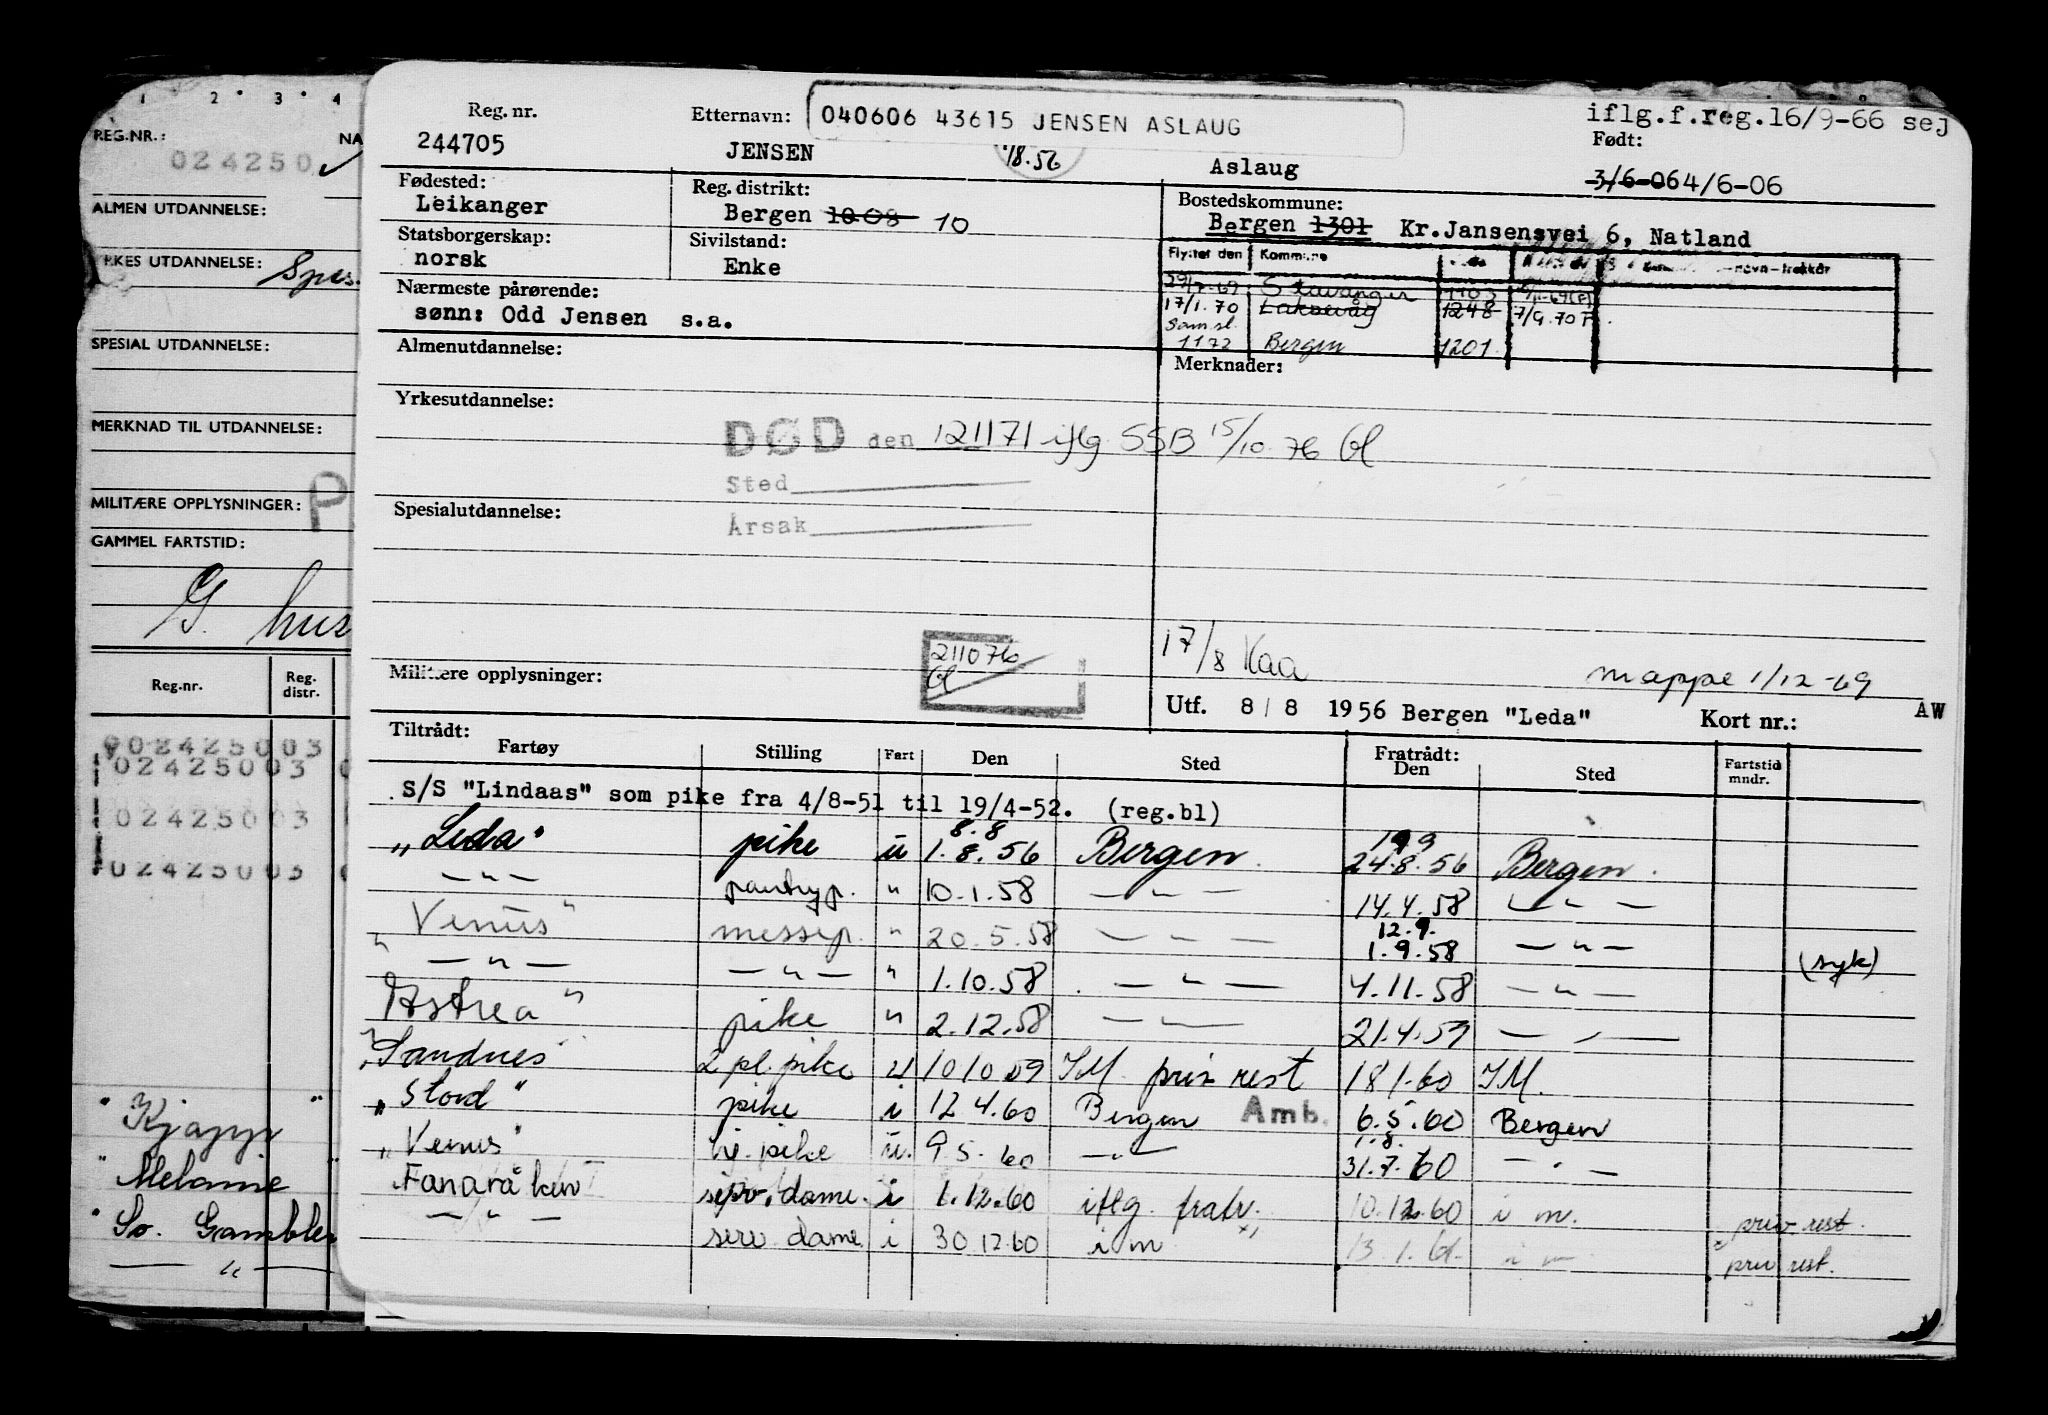 1 2 3 4
REG.NR.: NA
024250
ALMEN UTDANNELSE:
RKES UTDANNELSE:
SPESIAL UTDANNELSE:
MERKNAD TIL UTDANNELSE:
MILITÆRE OPPLYSNINGER: P
GAMMEL FARTSTID:
G. hus
Reg.nr. Reg. distr.
0242500 03
0242500 03
0242500 03
0242500 03
" Kjapp "
" Melanie "
" So. Gambler
— " —
040606 43615 JENSEN ASLAUG
iflg.f.reg.16/9-66 sej
Reg. nr. Etternavn: Født:
244705 JENSEN 18.56 Aslaug 3/6-06 4/6-06
Fødested: Reg. distrikt: Bostedskommune:
Leikanger Bergen 1008 10 Bergen 1301 Kr.Jansensvei 6, Natland
Statsborgerskap: Sivilstand:
norsk Enke
Flyttet den Kommune
Stavanger 1103
17/1.70 Laksevåg 1248 7/9.70 F
Sam.sl.
1172 Bergen 1201
Nærmeste pårørende:
sønn: Odd Jensen s.a.
Almenutdannelse: Merknader:
Yrkesutdannelse:
DØD den 121171 iflg SSB 15/10.76 Gl
Sted
Årsak
Spesialutdannelse:
17/8 Kaa
211076
Gl
mappe 1/12-69
Militære opplysninger: Utf. 8/8 1956 Bergen "Leda" Kort nr.: AW
Tiltrådt: Fratrådt:
Fartøy Stilling Fart Den Sted Den Sted Fartstid mndr.
S/S "Lindaas" som pike fra 4/8-51 til 19/4-52. (reg.bl)
8.8 19 9
"Leda" pike u 1.8.56 Bergen. 24.8.56 Bergen.
— " — pantryp. " 10.1.58 — " — 14.4.58 — " —
12.9.
"Venus" messep. " 20.5.58 — " — 1.9.58 — " — (syk)
— " — — " — " 1.10.58 — " — 4.11.58 — " —
"Astrea" pike " 2.12.58 — " — 21.4.59 — " —
"Sandnes" 2 pl. pike u 10 10 59 IM. priv rest 18 1.60 IM.
"Stord" pike i 12 4.60 Bergen Amb. 6.5.60 Bergen
1.8.
"Venus" hj. pike u. 9.5.60 — " — 31.7.60 — " —
Fanaråken serv.dame. i 1.12.60 iflg. fratr. 10.12.60 i m. priv rest.
— " — serv dame i 30 12 60 i m x) 13.1.61. i m x priv rest.